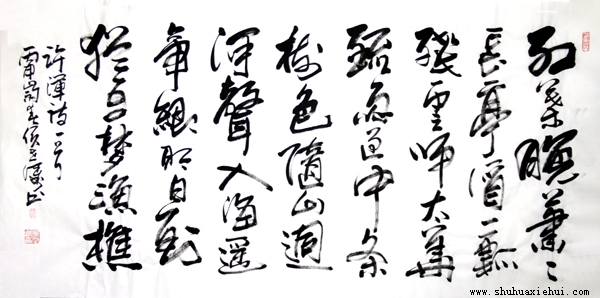 红葉晚蕭々
長亭酒一瓢
殘雲歸太華
疏雨過中条
樹色隨山迥
河聲入海遥
帝鄉明日到
猶自夢漁樵
許渾詩一首
www.shuhuaxiehui.com